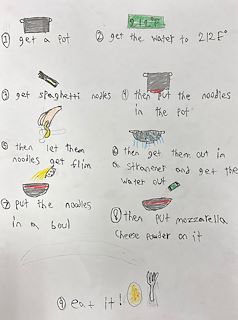 ① get a pot
212°F
② get the water to 212F°
③ get spaghetti nodles
④ then put the noodles
in the pot
⑤ then let them
noodles get flim
⑥ then get them out in
a stranener and get the
water out
⑦ put the noodles
in a boul
⑧ then put mozzarella
cheese powder on it
⑨ eat it!